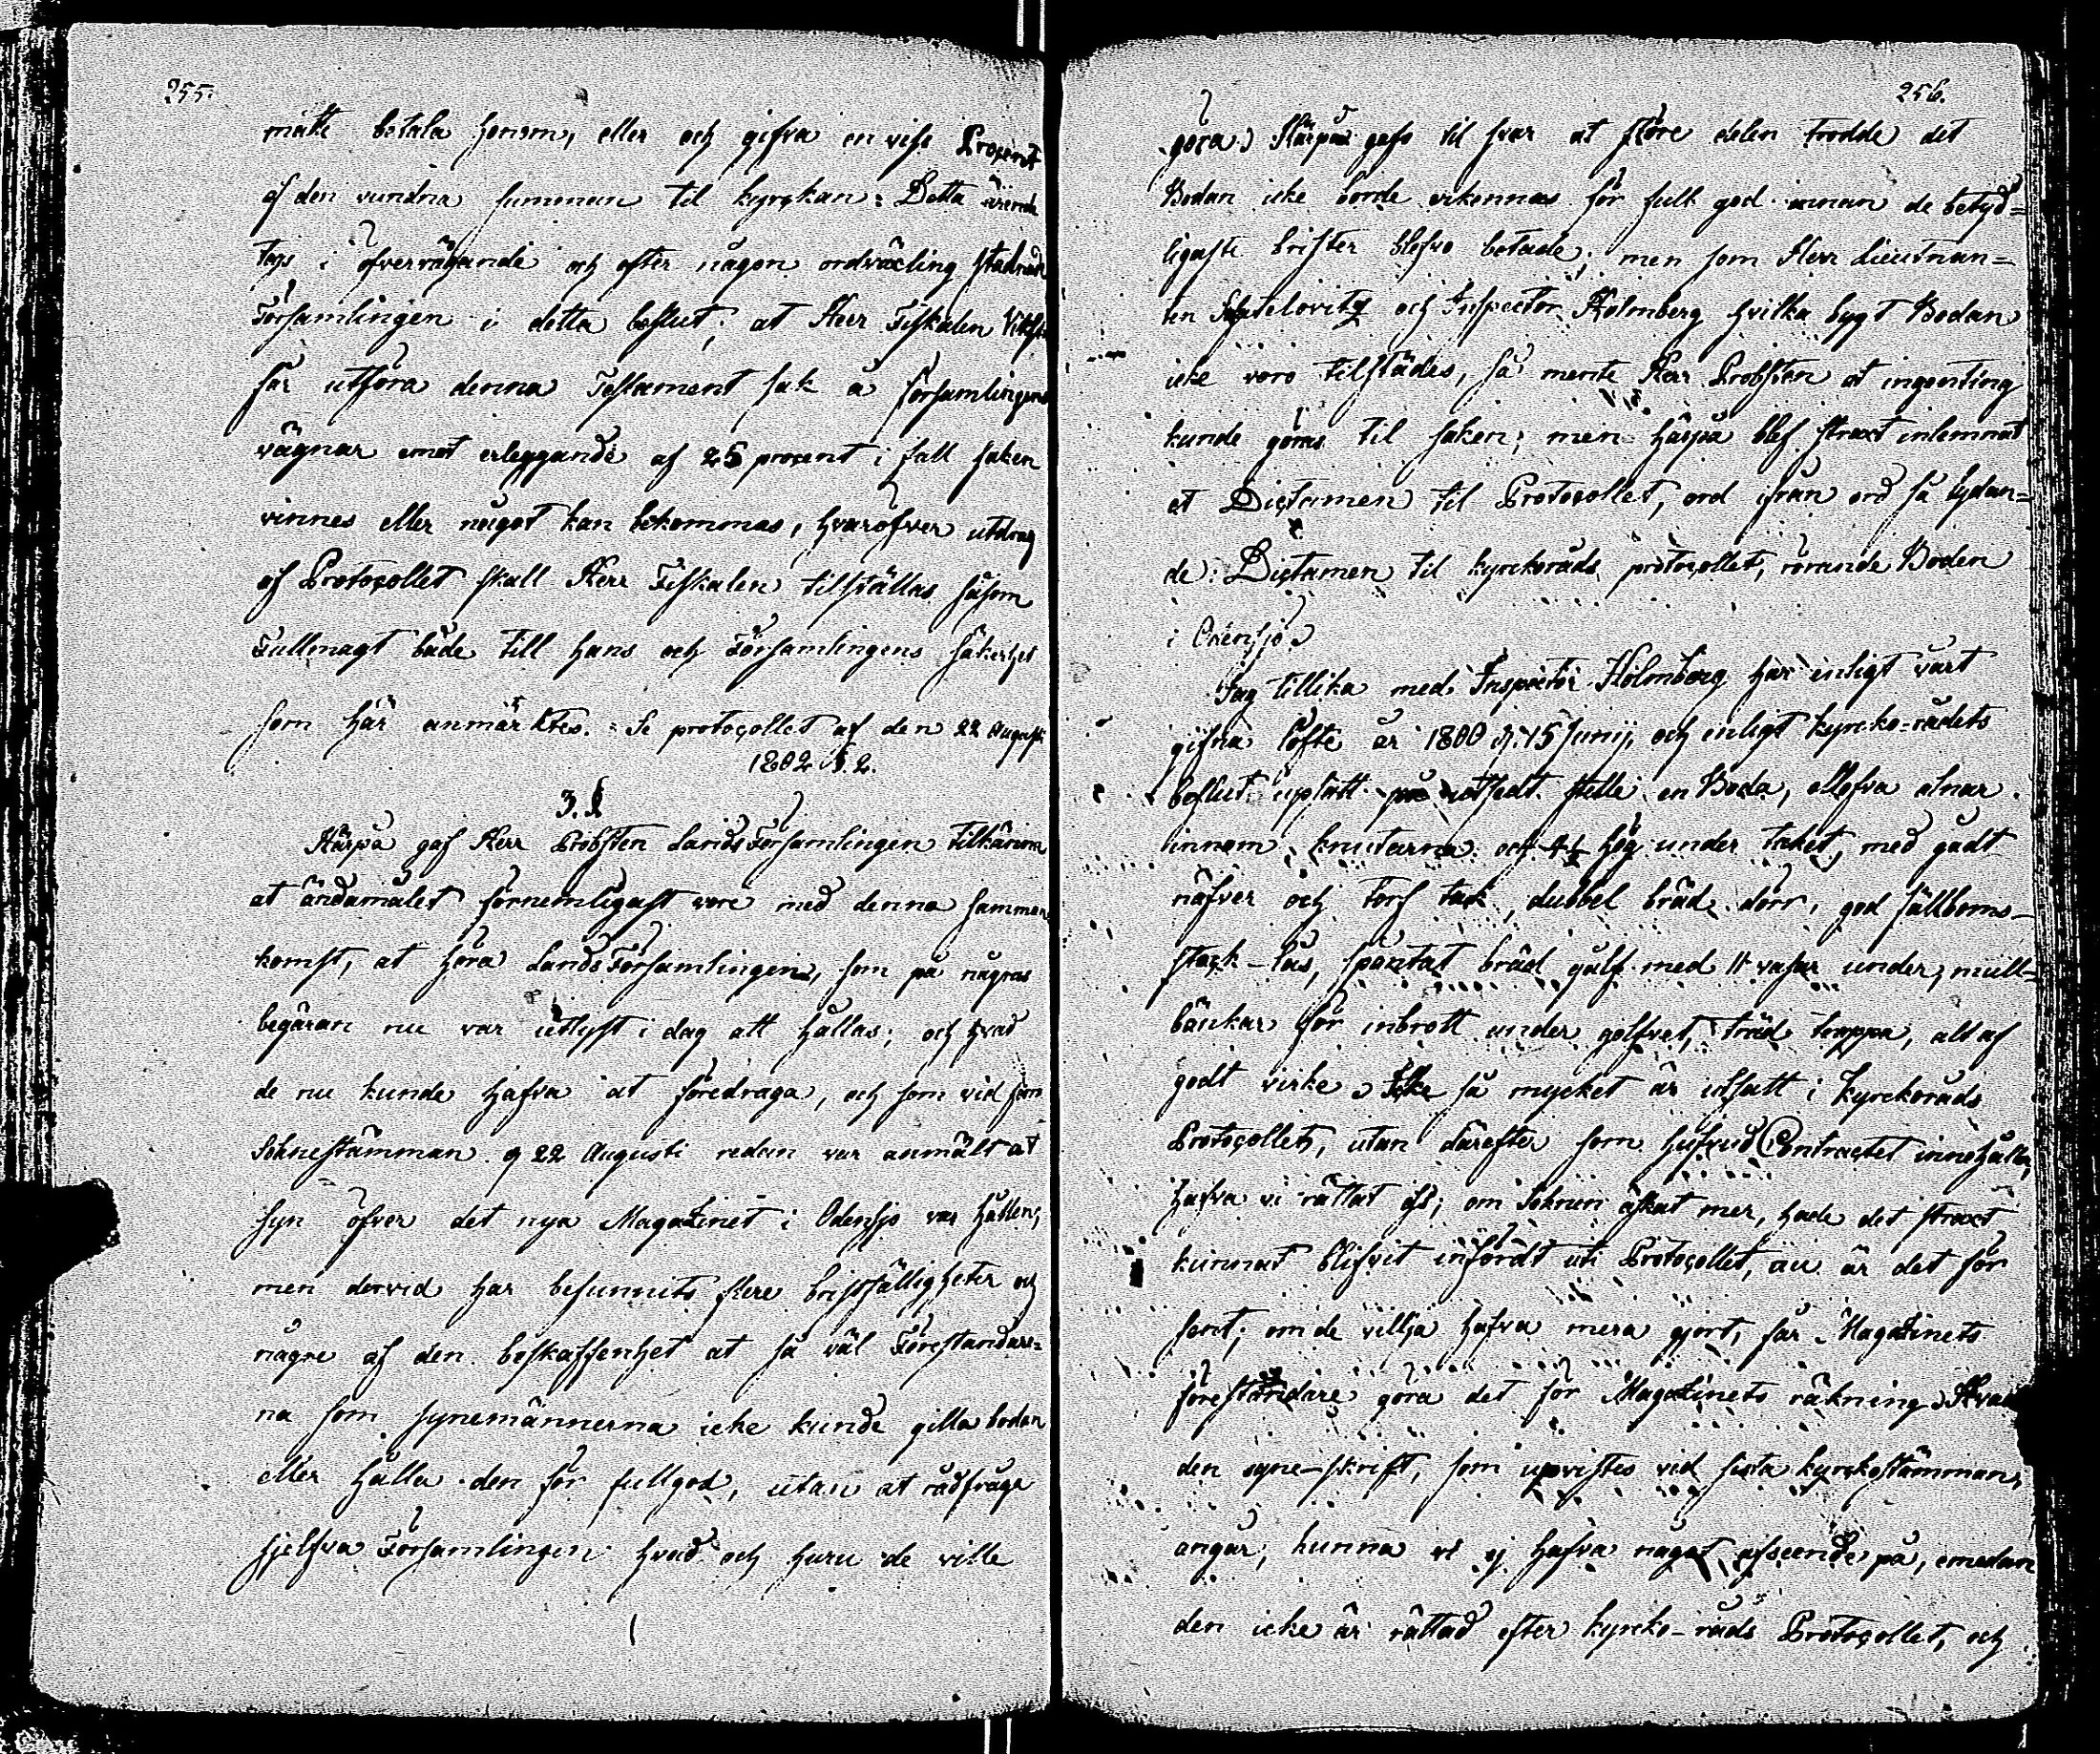 255.
måtte betala honom, eller och gifva en viss Procent
af den vundna summan til kyrckan: Detta ärende
togs i öfvervägande och efter någon ordväxling stadnade
Församlingen i detta beslut, at Herr Fiskalen
får utföra denna Testament sak å församlingens
vägnar emot erläggande af 25 procent i fall saken
vinnes eller något kan bekommas, hvaröfver utdrag
af Protocollet skall Herr Fiskalen tilställas såsom
Fullmagt både till hans och Församlingens säkerhet
som här anmärktes. Se protocollet af den 22 Augusti
1802 §. 2.
3. §
Härpå gaf Herr Probsten Lands Församlingen tilkänna
at ändamålet förnemligast vore med denna samman-
komst, at höra Lands Församlingen, som på någras
begäran nu var utlyst i dag att hållas; och hvad
de nu kunde hafva at föredraga, och som vid
Soknestämman d 22 Augusti redan var anmält at
syn öfver det nya Magazinet i Odensjö var hållen,
men dervid har befunnits flere bristfälligheter och
någre af den beskaffenhet at så väl Föreståndare-
na som synemännerna icke kunde gilla boden
eller hålla den för fullgod, utan at rådfråga
sjelfva Församlingen hvad och huru de ville
256.
göra. Härpå gafs til svar at större delen trodde det
Bodan icke borde erkennas för full god innan de betyd-
ligaste brister blefvo botade; men som Herr Lieutnan-
ten och Inspector Holmberg hvilka bygt Bodan
icke voro tilstädes, så mente Herr Probsten at ingenting
kunde göras til saken; men härpå blef straxt inlemnat
et Dictamen til Protocollet, ord ifrån ord så lydan-
de: Dictamen til kyrckoråds protocollet, rörande Boden
i Odensjö.
Jag tillika med Inspector Holmberg har enligt vårt
gifna löfte år 1800 d. 15 Junij, och enligt kyrcko-rådets
beslut upsatt på utsedt ställe en Boda, ellofva alnar
innom knutarna och 4½ hög under taket, med godt
näfver och torf tak, dubbel bräd dörr, god fällboms-
stock-lås, spåntat bräd gålf med 11 vasar under, mull-
bänkar för inbrott under golfvet, träd trappa, alt af
godt virke. Icke så mycket är utsatt i Kyrckoråds
Protocollet, utan därefter som hufvud Contractet innehåller,
hafva vi rättat oss; om Soknen äskat mer, hade det straxt
kunnat blifvit infördt uti Protocollet, nu är det för
sent; om de villja hafva mera gjort, får Magazinets
föreståndare göra det för Magazinets räkning. Hvad
den syne-skrift, som upvistes vid sista kyrckostämman,
angår, kunna vi ej hafva något afseende på, emedan
den icke är rättad efter kyrcko-råds Protocollet, och